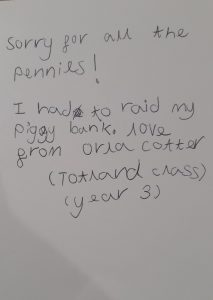 sorry for all the
pennies!
I had to raid my
piggy bank. love
from orla cotter
(Totland class)
(year 3)